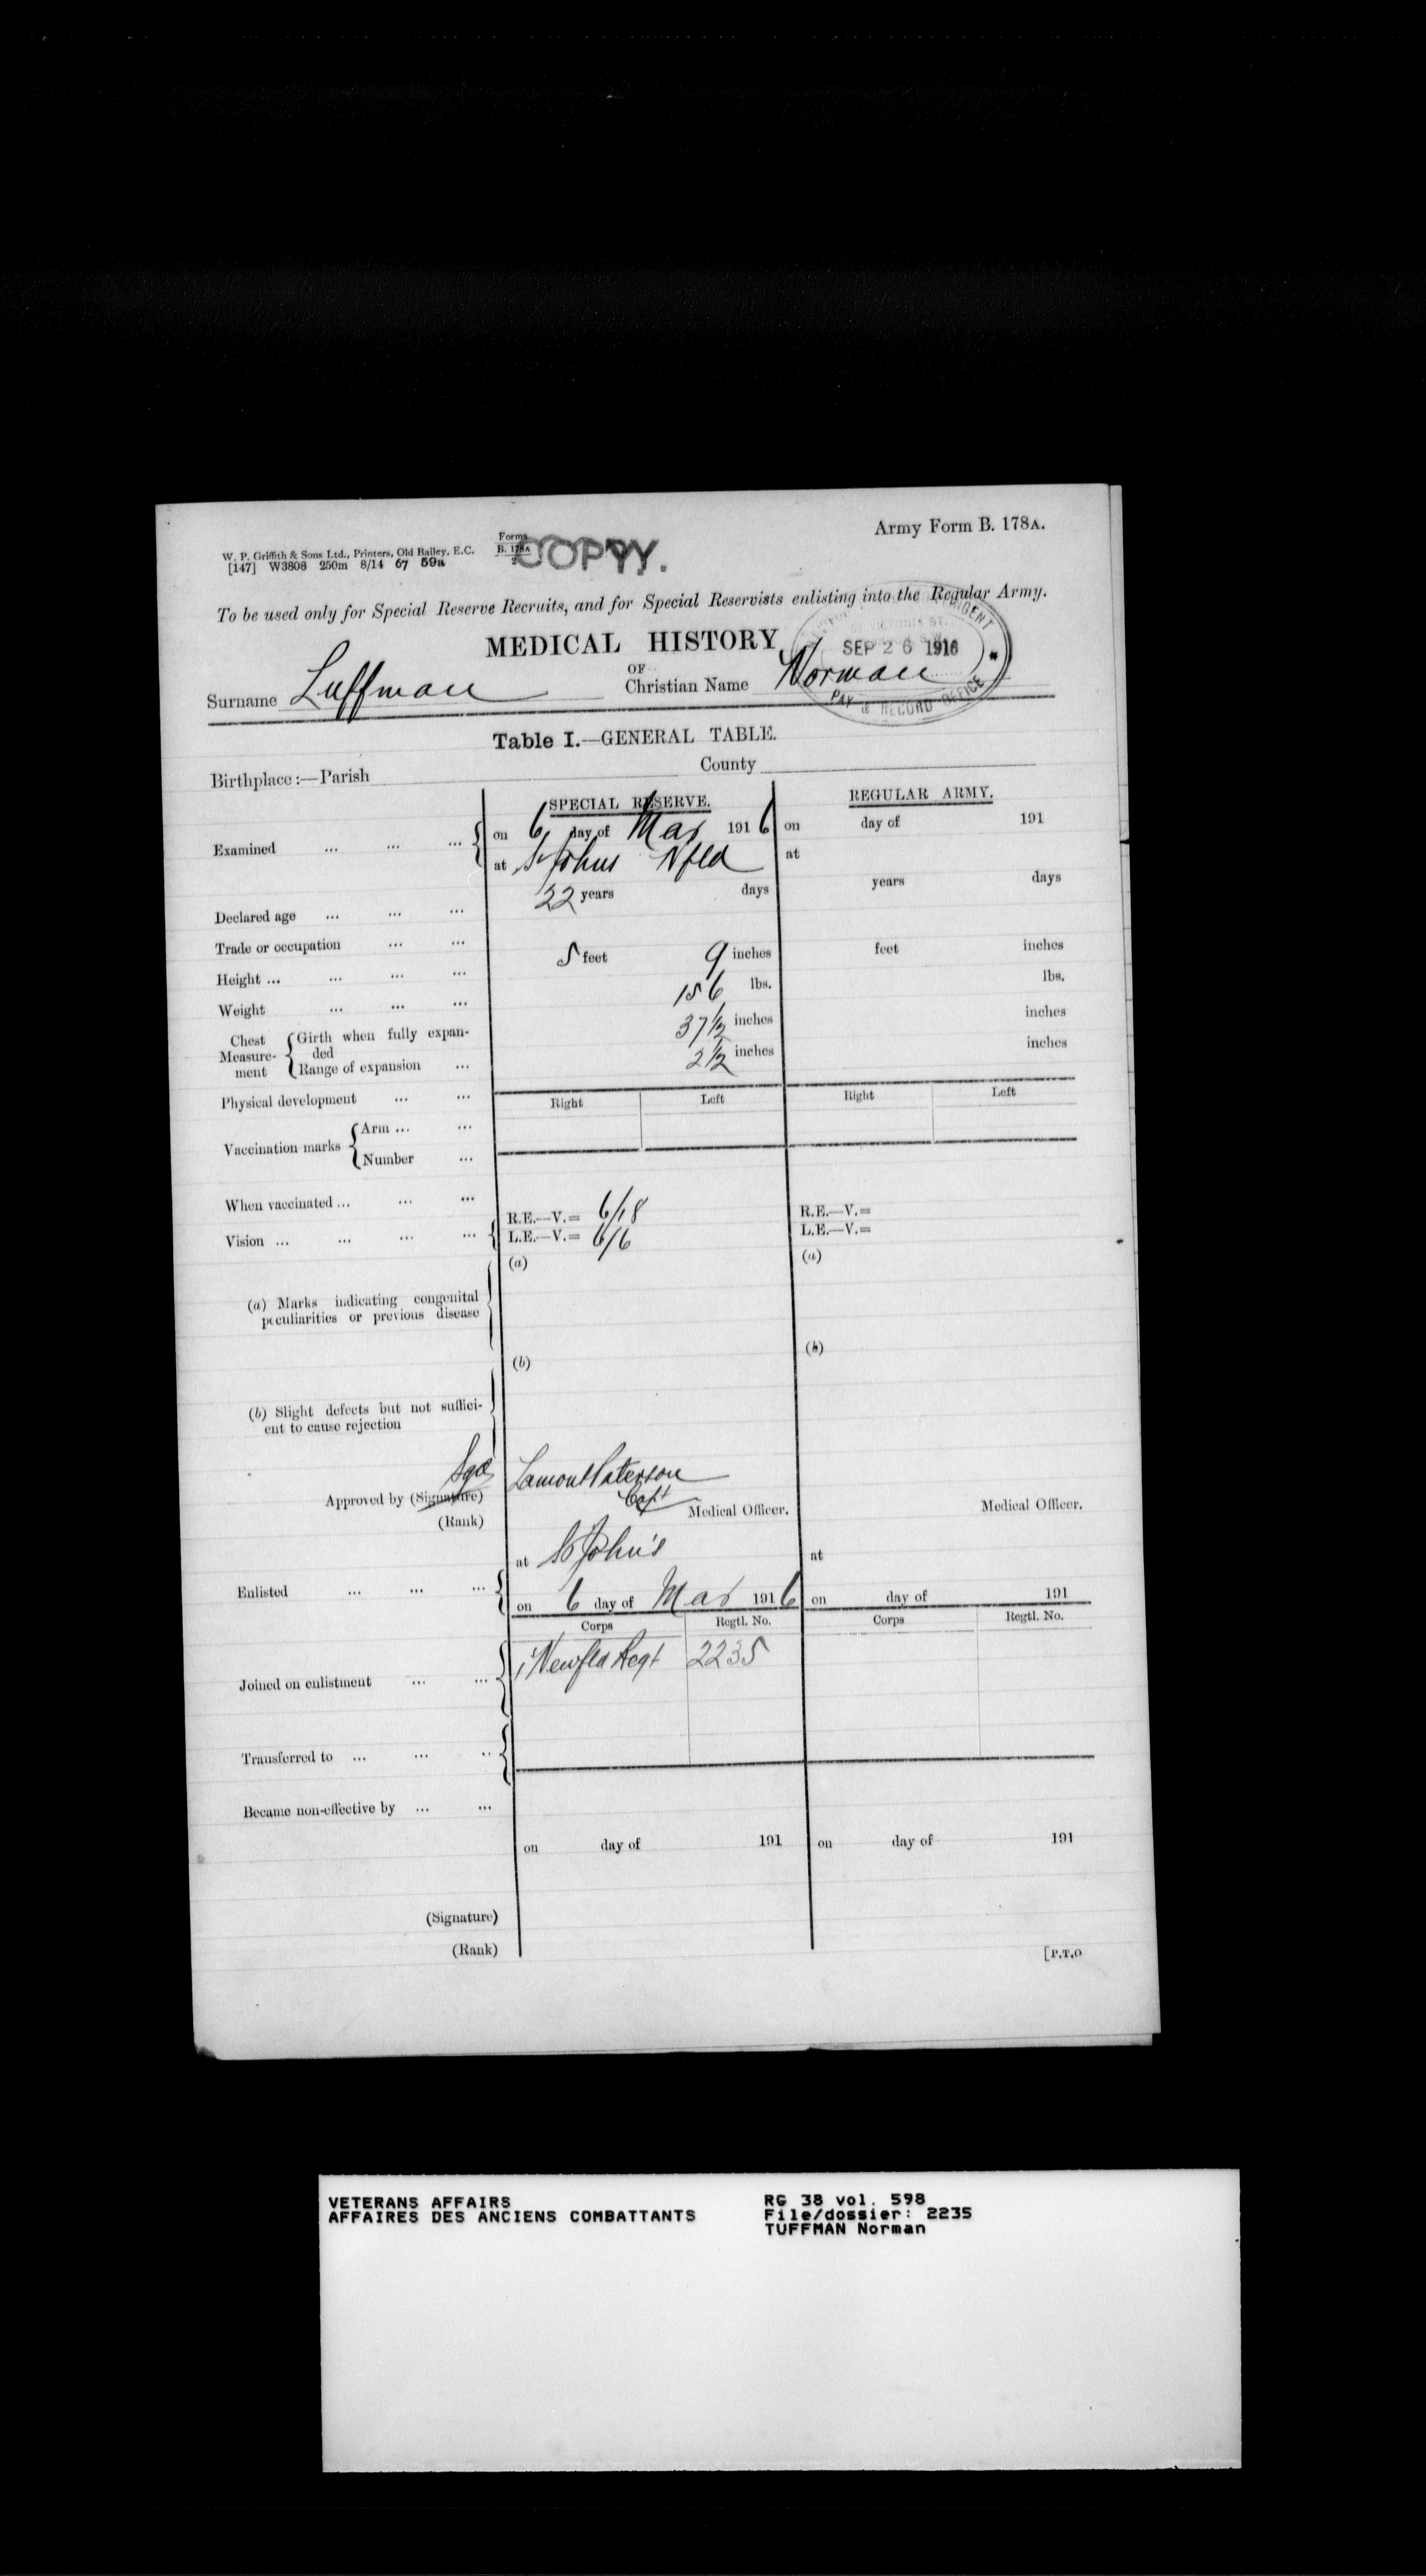 Army Form B. 178A.
W. P. Griffith & Sons Ltd., Printers, Old Bailey, E.C.
[147] W3808 250m 8/14 67 59a
Forms
B. 178A
2
COPY.
To be used only for Special Reserve Recruits, and for Special Reservists enlisting into the Regular Army.
MEDICAL HISTORY
OF
SEP 26 1916
PAY & RECORD OFFICE
Surname Luffman Christian Name Norman
Table I.—GENERAL TABLE.
Birthplace:—Parish County
SPECIAL RESERVE. REGULAR ARMY.
Examined ... ... ... on 6 day of Mar 1916 on day of 191
at St Johns Nfld at
Declared age ... ... ... 22 years days years days
Trade or occupation ... ...
Height ... ... ... ... 5 feet 9 inches feet inches
Weight ... ... ... 156 lbs. lbs.
Chest Measurement Girth when fully expanded 37½ inches inches
Range of expansion ... 2½ inches inches
Physical development ... ...
Right Left Right Left
Vaccination marks Arm ... ...
Number ...
When vaccinated ... ... ...
Vision ... ... ... ... R.E.—V.= 6/18 R.E.—V.=
L.E.—V.= 6/6 L.E.—V.=
(a) Marks indicating congenital (a) (a)
peculiarities or previous disease
(b) Slight defects but not suffici- (b) (b)
ent to cause rejection
Sgd Lamont Paterson
Approved by (Signature) Capt
(Rank) Medical Officer. Medical Officer.
at St John's at
Enlisted ... ... ... on 6 day of Mar 1916 on day of 191
Corps Regtl. No. Corps Regtl. No.
Joined on enlistment ... ... 1 Newfld Regt 2235
Transferred to ... ... ..
Became non-effective by ... ...
on day of 191 on day of 191
(Signature)
(Rank)
[P.T.O
VETERANS AFFAIRS RG 38 vol. 598
AFFAIRES DES ANCIENS COMBATTANTS File/dossier: 2235
TUFFMAN Norman